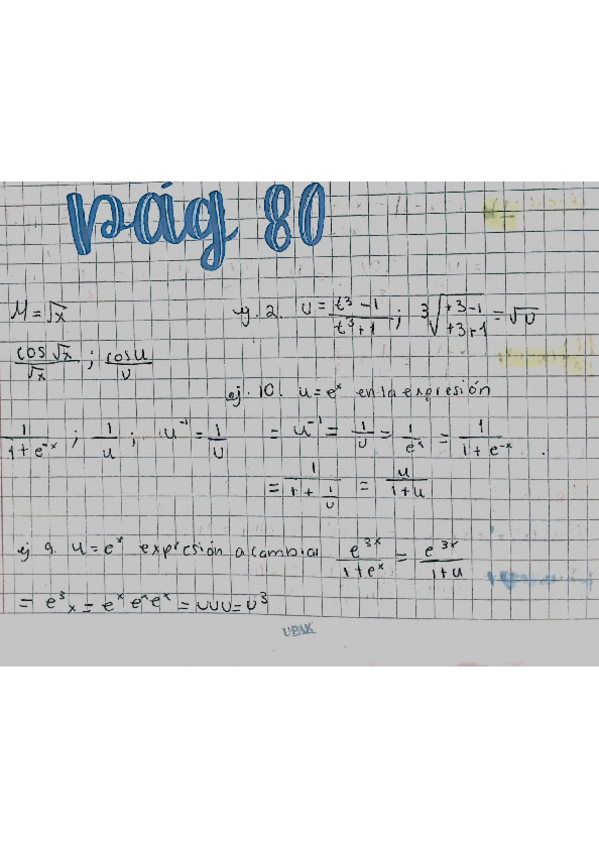 pág 80
M = √x
ej. 2. u = t³ - 1 / t³ + 1 ; 3√+3-1 / +3+1 = √u
cos √x / √x ; cos u / u
ej. 10. u = eˣ en la expresión
1 / 1 + e⁻ˣ ; 1 / u ; u⁻¹ = 1 / u = u⁻¹ = 1 / u = 1 / eˣ = 1 / 1 + e⁻ˣ .
= 1 / 1 + 1 / u = u / 1 + u
ej 9. u = eˣ expresión a cambiar e³ˣ / 1 + eˣ = e³ˣ / 1 + u
= e³x = eˣ eˣ eˣ = uuu = u³